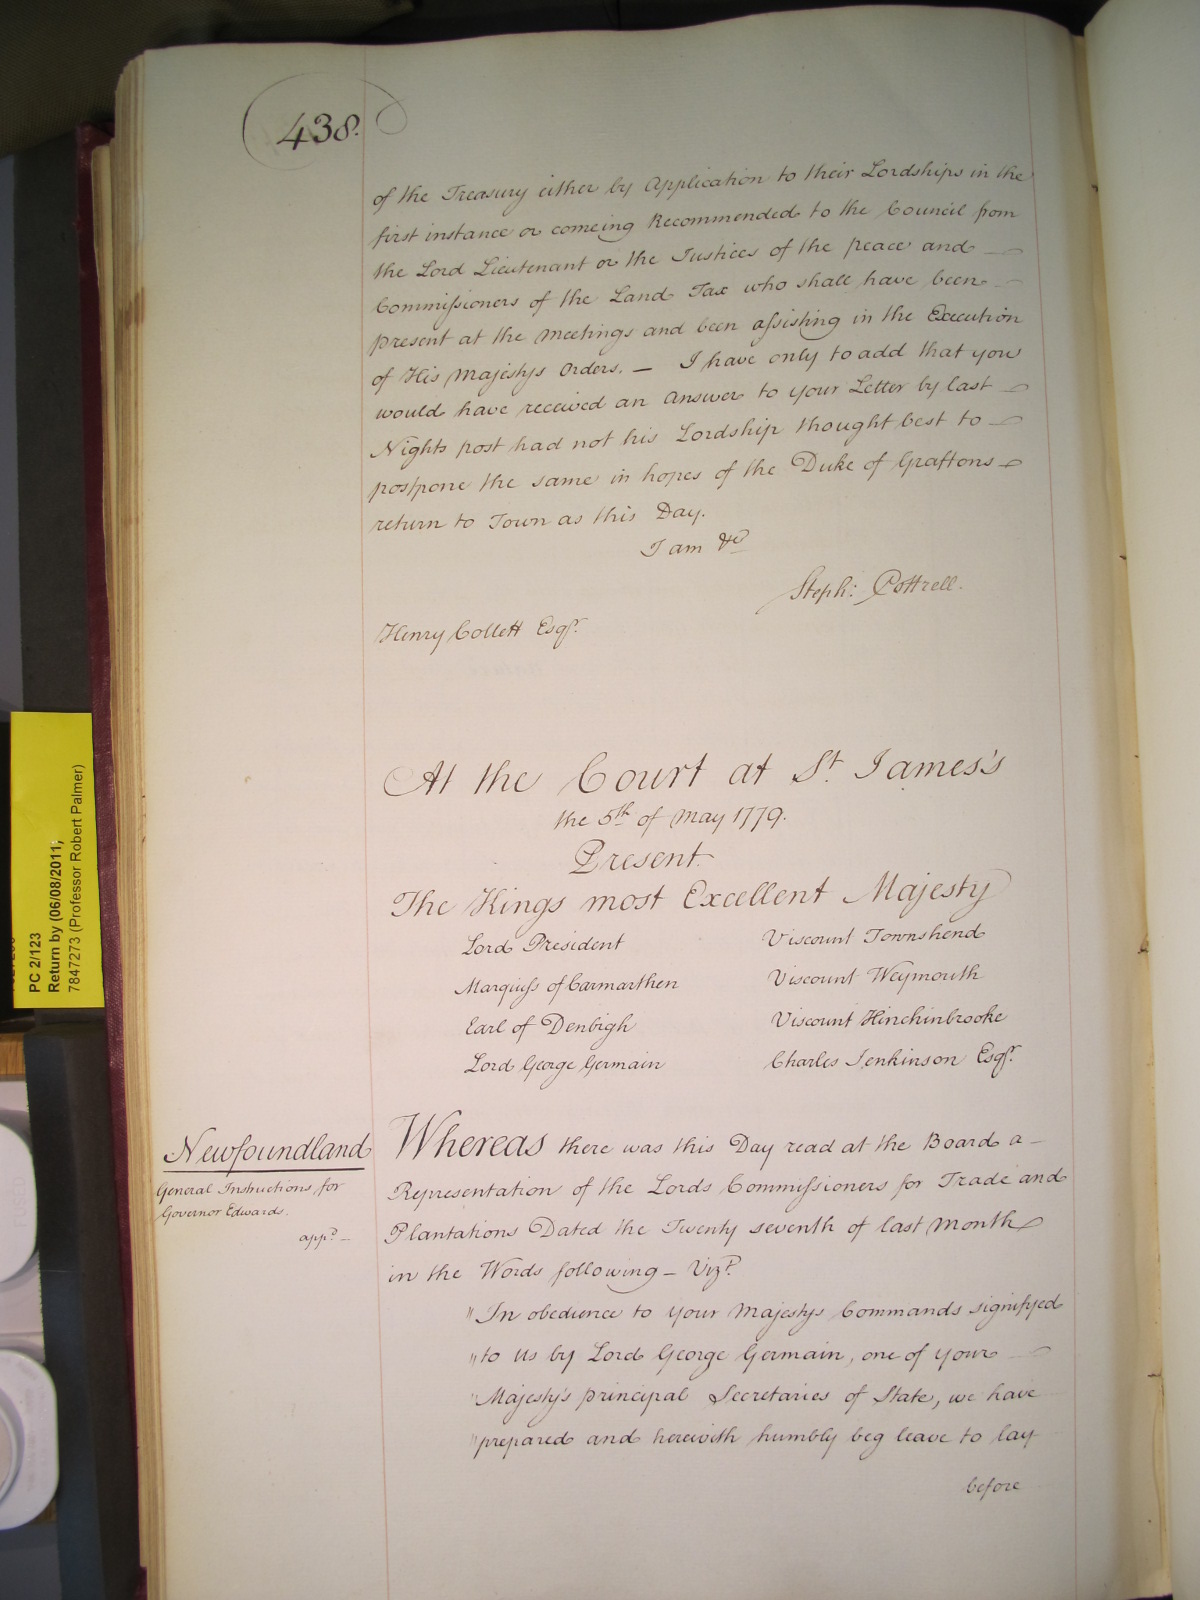 438.
of the Treasury either by Application to their Lordships in the
first instance or comeing Recommended to the Council from
the Lord Lieutenant or the Justices of the peace and
Commissioners of the Land Tax who shall have been
present at the Meetings and been assisting in the Execution
of His Majestys Orders. — I have only to add that you
would have received an Answer to your Letter by last
Nights post had not his Lordship thought best to
postpone the same in hopes of the Duke of Graftons
return to Town as this Day.
I am &c
Steph: Cottrell.
Henry Collett Esqr.
At the Court at St. James's
the 5th of May 1779.
Present.
The Kings most Excellent Majesty
Lord President Viscount Townshend
Marquiss of Carmarthen Viscount Weymouth
Earl of Denbigh Viscount Hinchinbrooke
Lord George Germain Charles Jenkinson Esqr.
Newfoundland
General Instructions for
Governor Edwards.
appd. —
Whereas there was this Day read at the Board a —
Representation of the Lords Commissioners for Trade and
Plantations Dated the Twenty seventh of last Month
in the Words following — Vizt.
"In obedience to your Majestys Commands signifyed
"to us by Lord George Germain, one of your
"Majesty's principal Secretaries of State, we have
"prepared and herewith humbly beg leave to lay
before
PC 2/123
Return by (06/08/2011;
7847273 (Professor Robert Palmer)